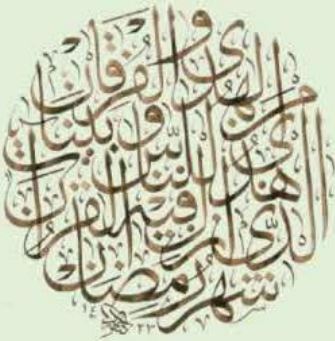 شهر رمضان
الذي أنزل فيه القرآن
هدى للناس وبينات
من الهدى والفرقان
١٤٢٣